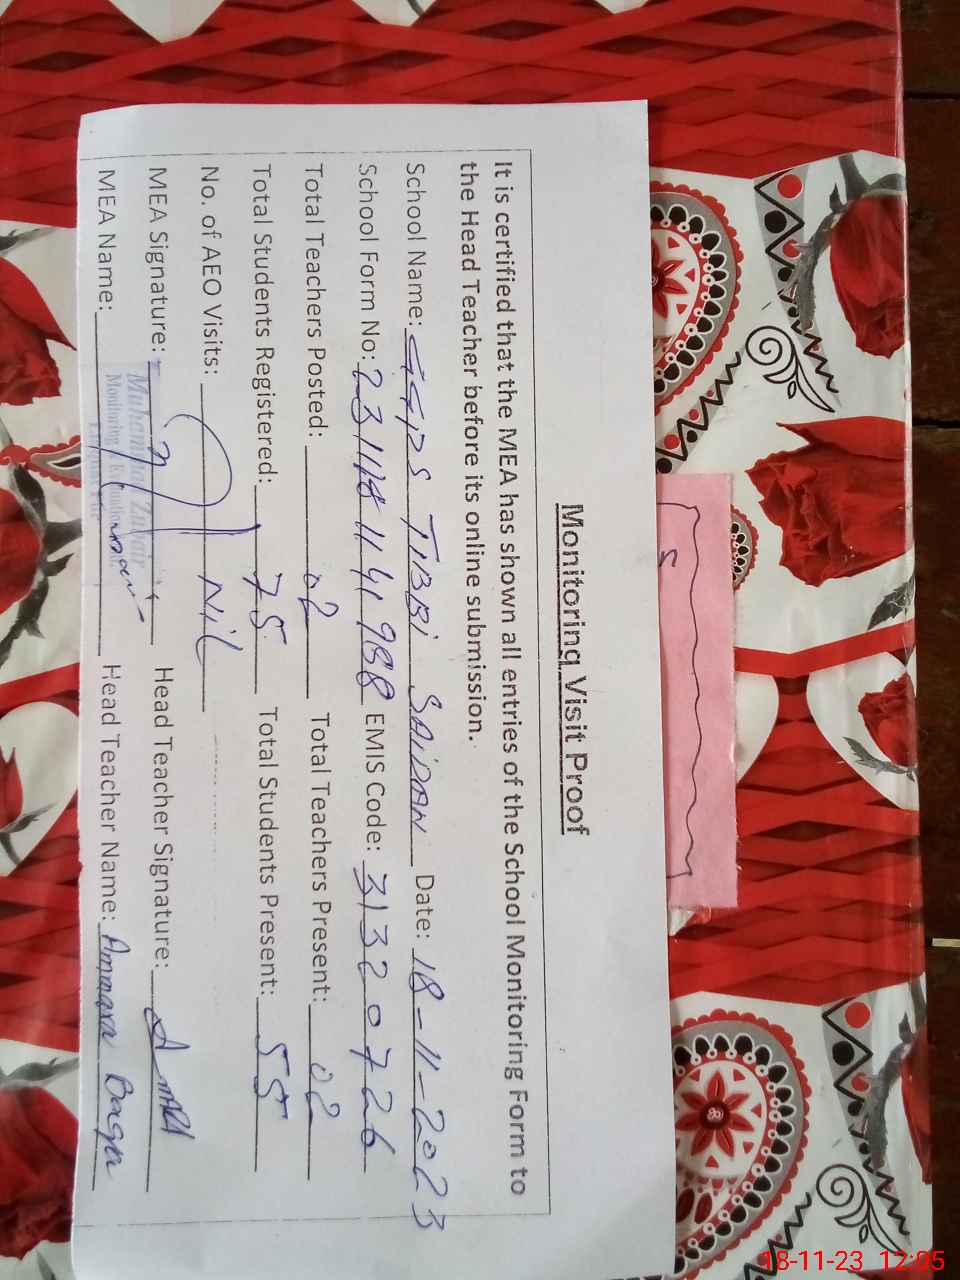 Monitoring Visit Proof
It is certified that the MEA has shown all entries of the School Monitoring Form to
the Head Teacher before its online submission.
School Name: GGPS TIBBI SAIDAN Date: 18-11-2023
School Form No: 231118114988 EMIS Code: 31320726
Total Teachers Posted: 02 Total Teachers Present: 02
Total Students Registered: 75 Total Students Present: 55
No. of AEO Visits: NIL
MEA Signature: Head Teacher Signature:
MEA Name: Head Teacher Name: Ammara
Muhammad
Monitoring
18-11-23 12:05